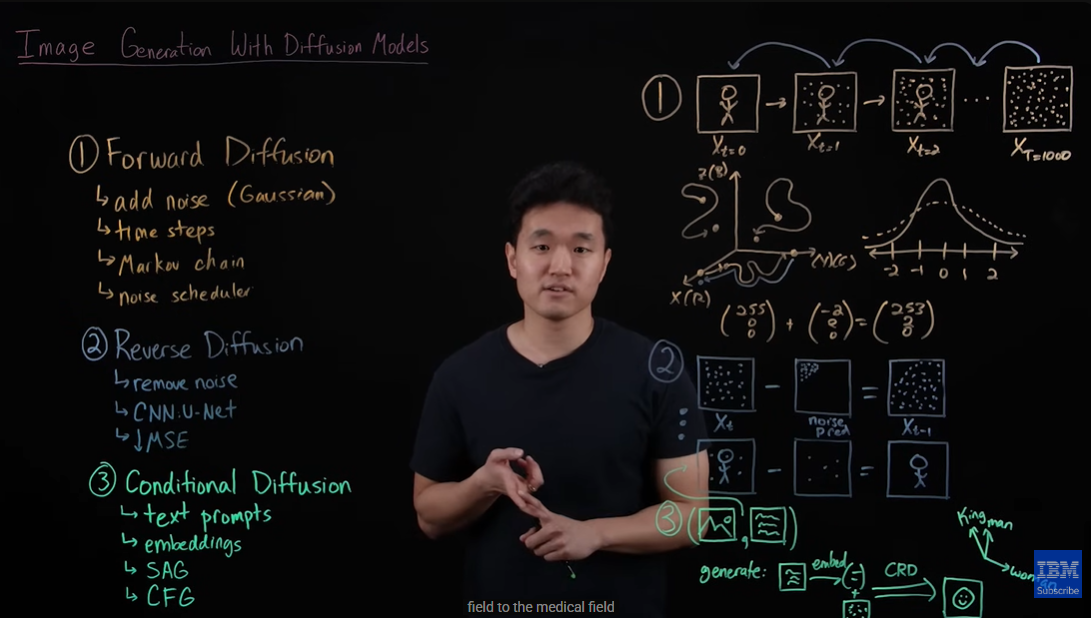 Image Generation With Diffusion Models
① Forward Diffusion
↳ add noise (Gaussian)
↳ time steps
↳ Markov chain
↳ noise scheduler
② Reverse Diffusion
↳ remove noise
↳ CNN: U-Net
↳ ↓MSE
③ Conditional Diffusion
↳ text prompts
↳ embeddings
↳ SAG
↳ CFG
①
X t=0
X t=1
X t=2
...
X T=1000
Z(B)
Y(G)
X(R)
-2 -1 0 1 2
(255 0 0) + (-2 2 0) = (253 2 0)
②
− =
Xt
noise pred
Xt-1
− =
③ ( , )
King man
generate:
embed
CRD
+
IBM
Subscribe
field to the medical field